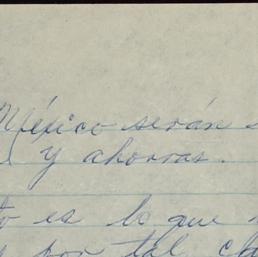 México serán
y ahorras.
es lo que
por tal